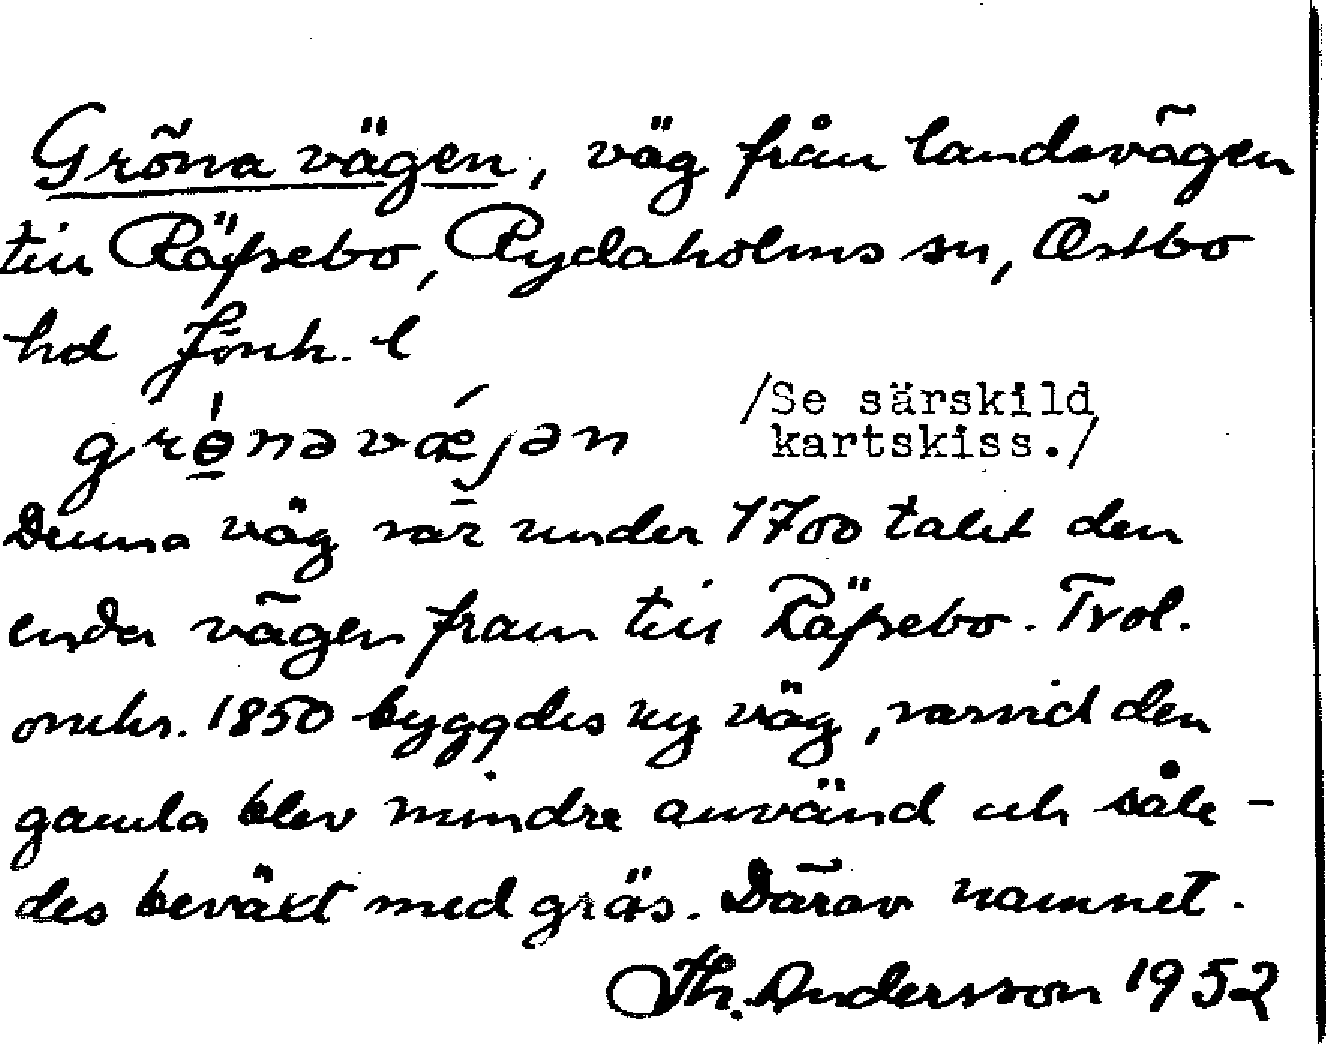 Gröna vägen, väg från landsvägen
till Räfsebo, Rydaholms sn, Östbo
hd Jönk. l
grө́nəvǽjən
/Se särskild
kartskiss./
Denna väg var under 1700 talet den
enda vägen fram till Räfsebo. Trol.
omkr. 1850 byggdes ny väg, varvid den
gamla blev mindre använd och såle-
des beväxt med gräs. Därav namnet.
Th. Andersson 1952